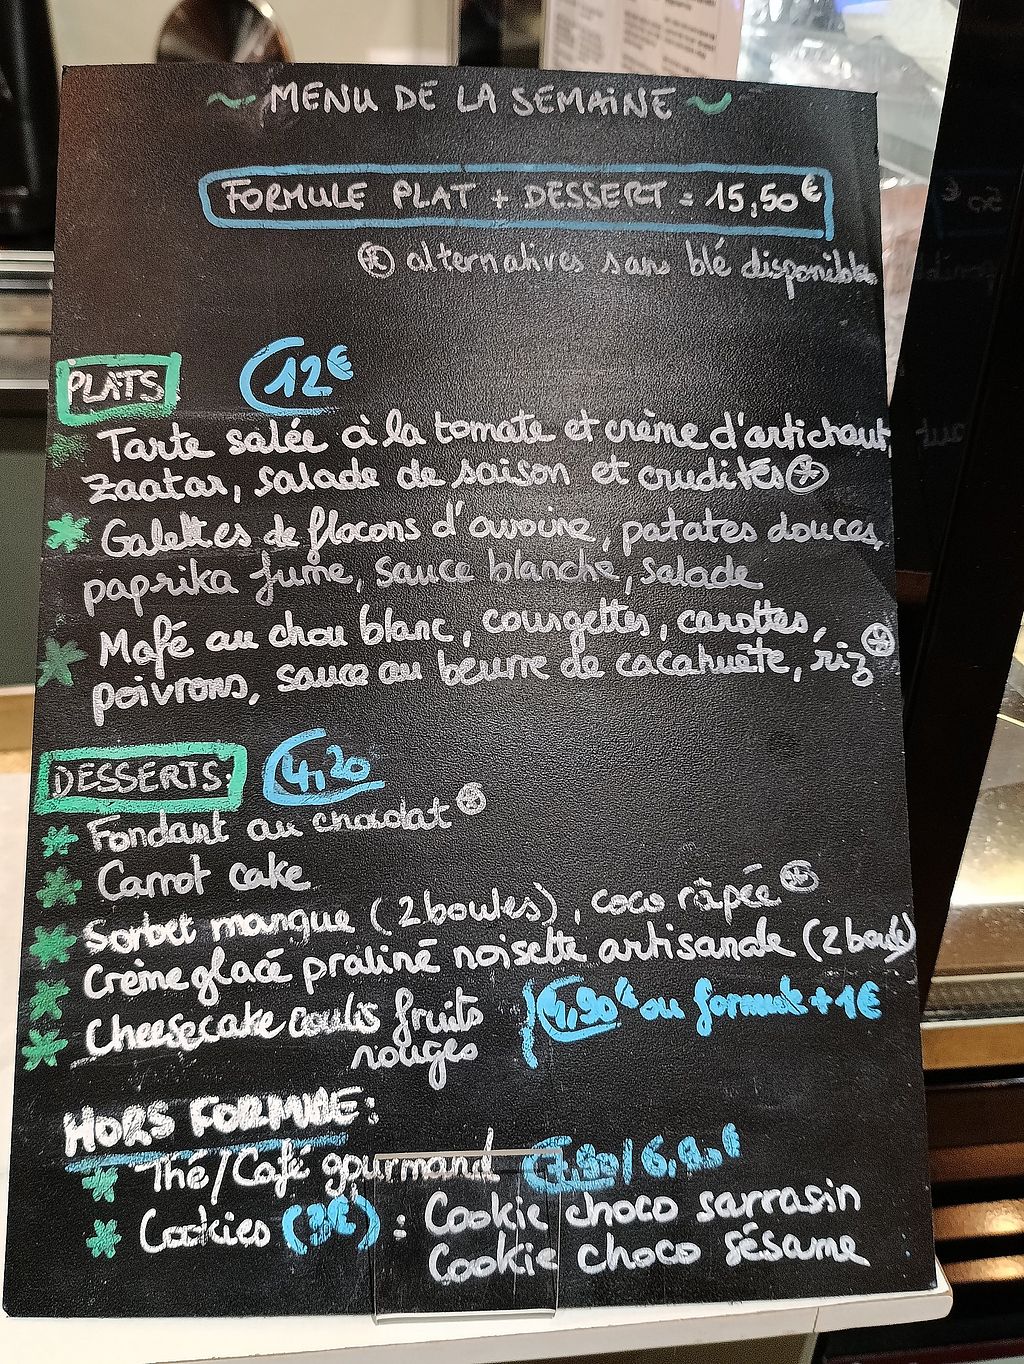 ~ MENU DE LA SEMAINE ~
FORMULE PLAT + DESSERT = 15,50€
alternatives sans blé disponibles
PLATS 12€
Tarte salée à la tomate et crème d'artichaut,
Zaatar, salade de saison et crudités
Galettes de flocons d'avoine, patates douces,
paprika fumé, sauce blanche, salade
Mafé au chou blanc, courgettes, carottes,
poivrons, sauce au beurre de cacahuète, riz
DESSERTS: 4,20
Fondant au chocolat
Carrot cake
Sorbet mangue (2 boules), coco râpée
Crème glacé praliné noisette artisanale (2 boules)
Cheesecake coulis fruits 4,90€ ou formule +1€
rouges
HORS FORMULE:
Thé/Café gourmand
Cookies (3€) : Cookie choco sarrasin
Cookie choco sésame